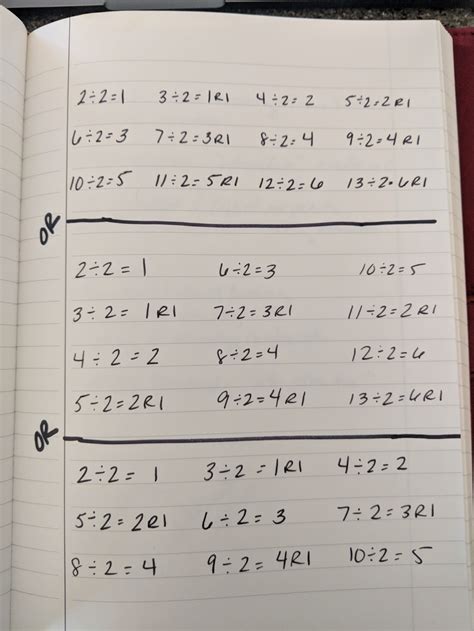 2÷2=1 3÷2=1R1 4÷2=2 5÷2=2R1
6÷2=3 7÷2=3R1 8÷2=4 9÷2=4R1
10÷2=5 11÷2=5R1 12÷2=6 13÷2=6R1
OR
2÷2=1 6÷2=3 10÷2=5
3÷2=1R1 7÷2=3R1 11÷2=2R1
4÷2=2 8÷2=4 12÷2=6
5÷2=2R1 9÷2=4R1 13÷2=6R1
OR
2÷2=1 3÷2=1R1 4÷2=2
5÷2=2R1 6÷2=3 7÷2=3R1
8÷2=4 9÷2=4R1 10÷2=5